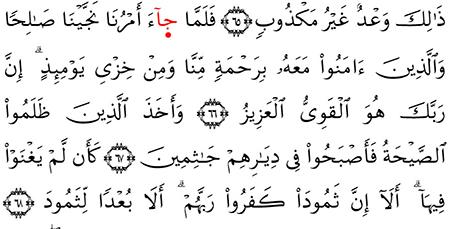 ذَٰلِكَ وَعْدٌ غَيْرُ مَكْذُوبٍ ٦٥ فَلَمَّا جَآءَ أَمْرُنَا نَجَّيْنَا صَٰلِحًا
وَٱلَّذِينَ ءَامَنُوا۟ مَعَهُۥ بِرَحْمَةٍ مِّنَّا وَمِنْ خِزْىِ يَوْمِئِذٍ ۗ إِنَّ
رَبَّكَ هُوَ ٱلْقَوِىُّ ٱلْعَزِيزُ ٦٦ وَأَخَذَ ٱلَّذِينَ ظَلَمُوا۟
ٱلصَّيْحَةُ فَأَصْبَحُوا۟ فِى دِيَٰرِهِمْ جَٰثِمِينَ ٦٧ كَأَن لَّمْ يَغْنَوْا۟
فِيهَآ ۗ أَلَآ إِنَّ ثَمُودَا۟ كَفَرُوا۟ رَبَّهُمْ ۗ أَلَا بُعْدًا لِّثَمُودَ ٦٨